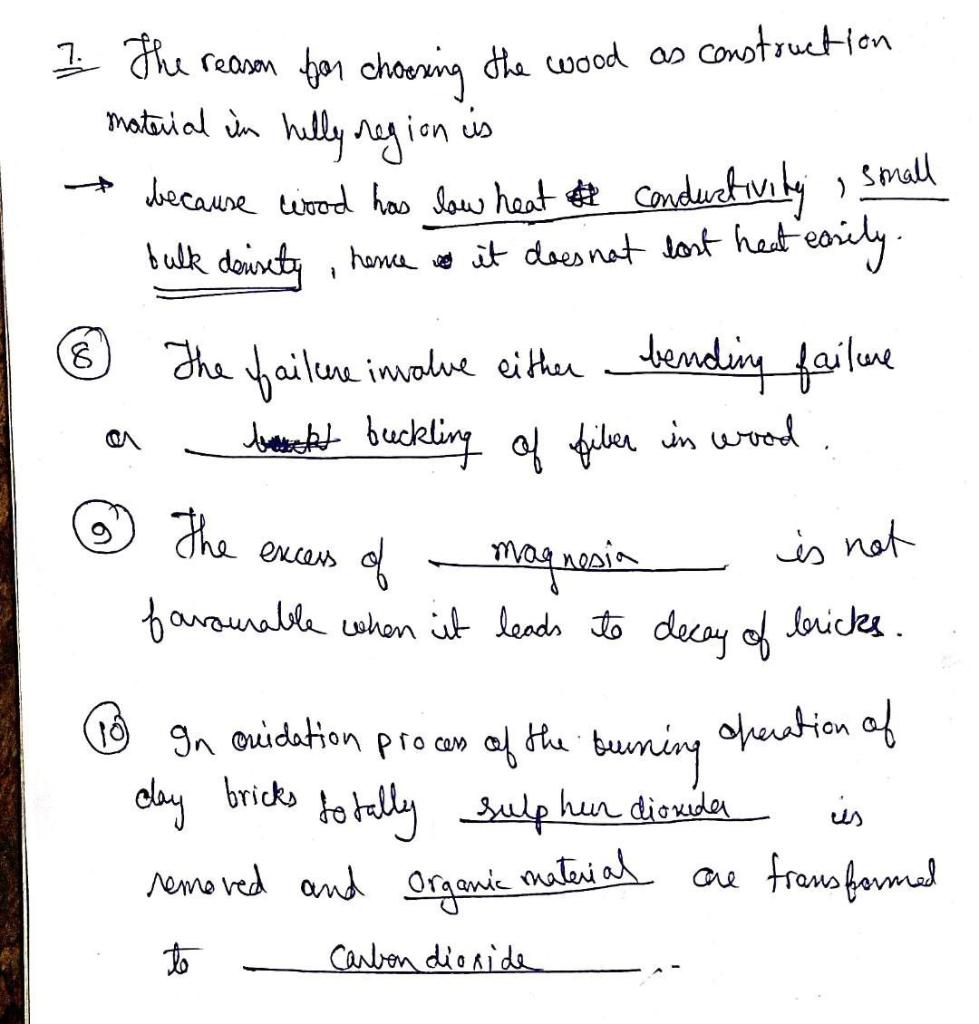 7. The reason for choosing the wood as construction
material in hilly region is
→ because wood has low heat conductivity, small
bulk density, hence it does not lost heat easily.
⑧ The failure involve either bending failure
or buckling of fiber in wood.
⑨ The excess of magnesia is not
favourable when it leads to decay of bricks.
⑩ In oxidation process of the burning operation of
clay bricks totally sulphur dioxides is
removed and organic material are transformed
to carbon dioxide